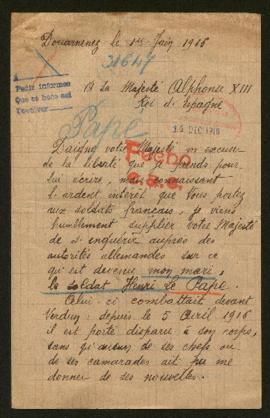 Douarnenez le 1er Juin 1916
31647
A Sa Majesté Alphonse XIII
Roi d'Espagne
Pedir informes
Pape
15 DIC 1916
Daigne votre Majesté m'excuser
de la liberté que je prends pour
lui écrire, mais connaissant
l'ardent intérêt que Vous portez
aux soldats français, je viens
humblement supplier votre Majesté
de s'enquérir auprès des
autorités allemandes sur ce
qu'est devenu mon mari,
le soldat Henri Le Pape.
Fecho
Celui-ci combattait devant
Verdun; depuis le 5 Avril 1916
il est porté disparu à son corps,
sans qu'aucun de ses chefs ou
de ses camarades ait pu me
donner de ses nouvelles.